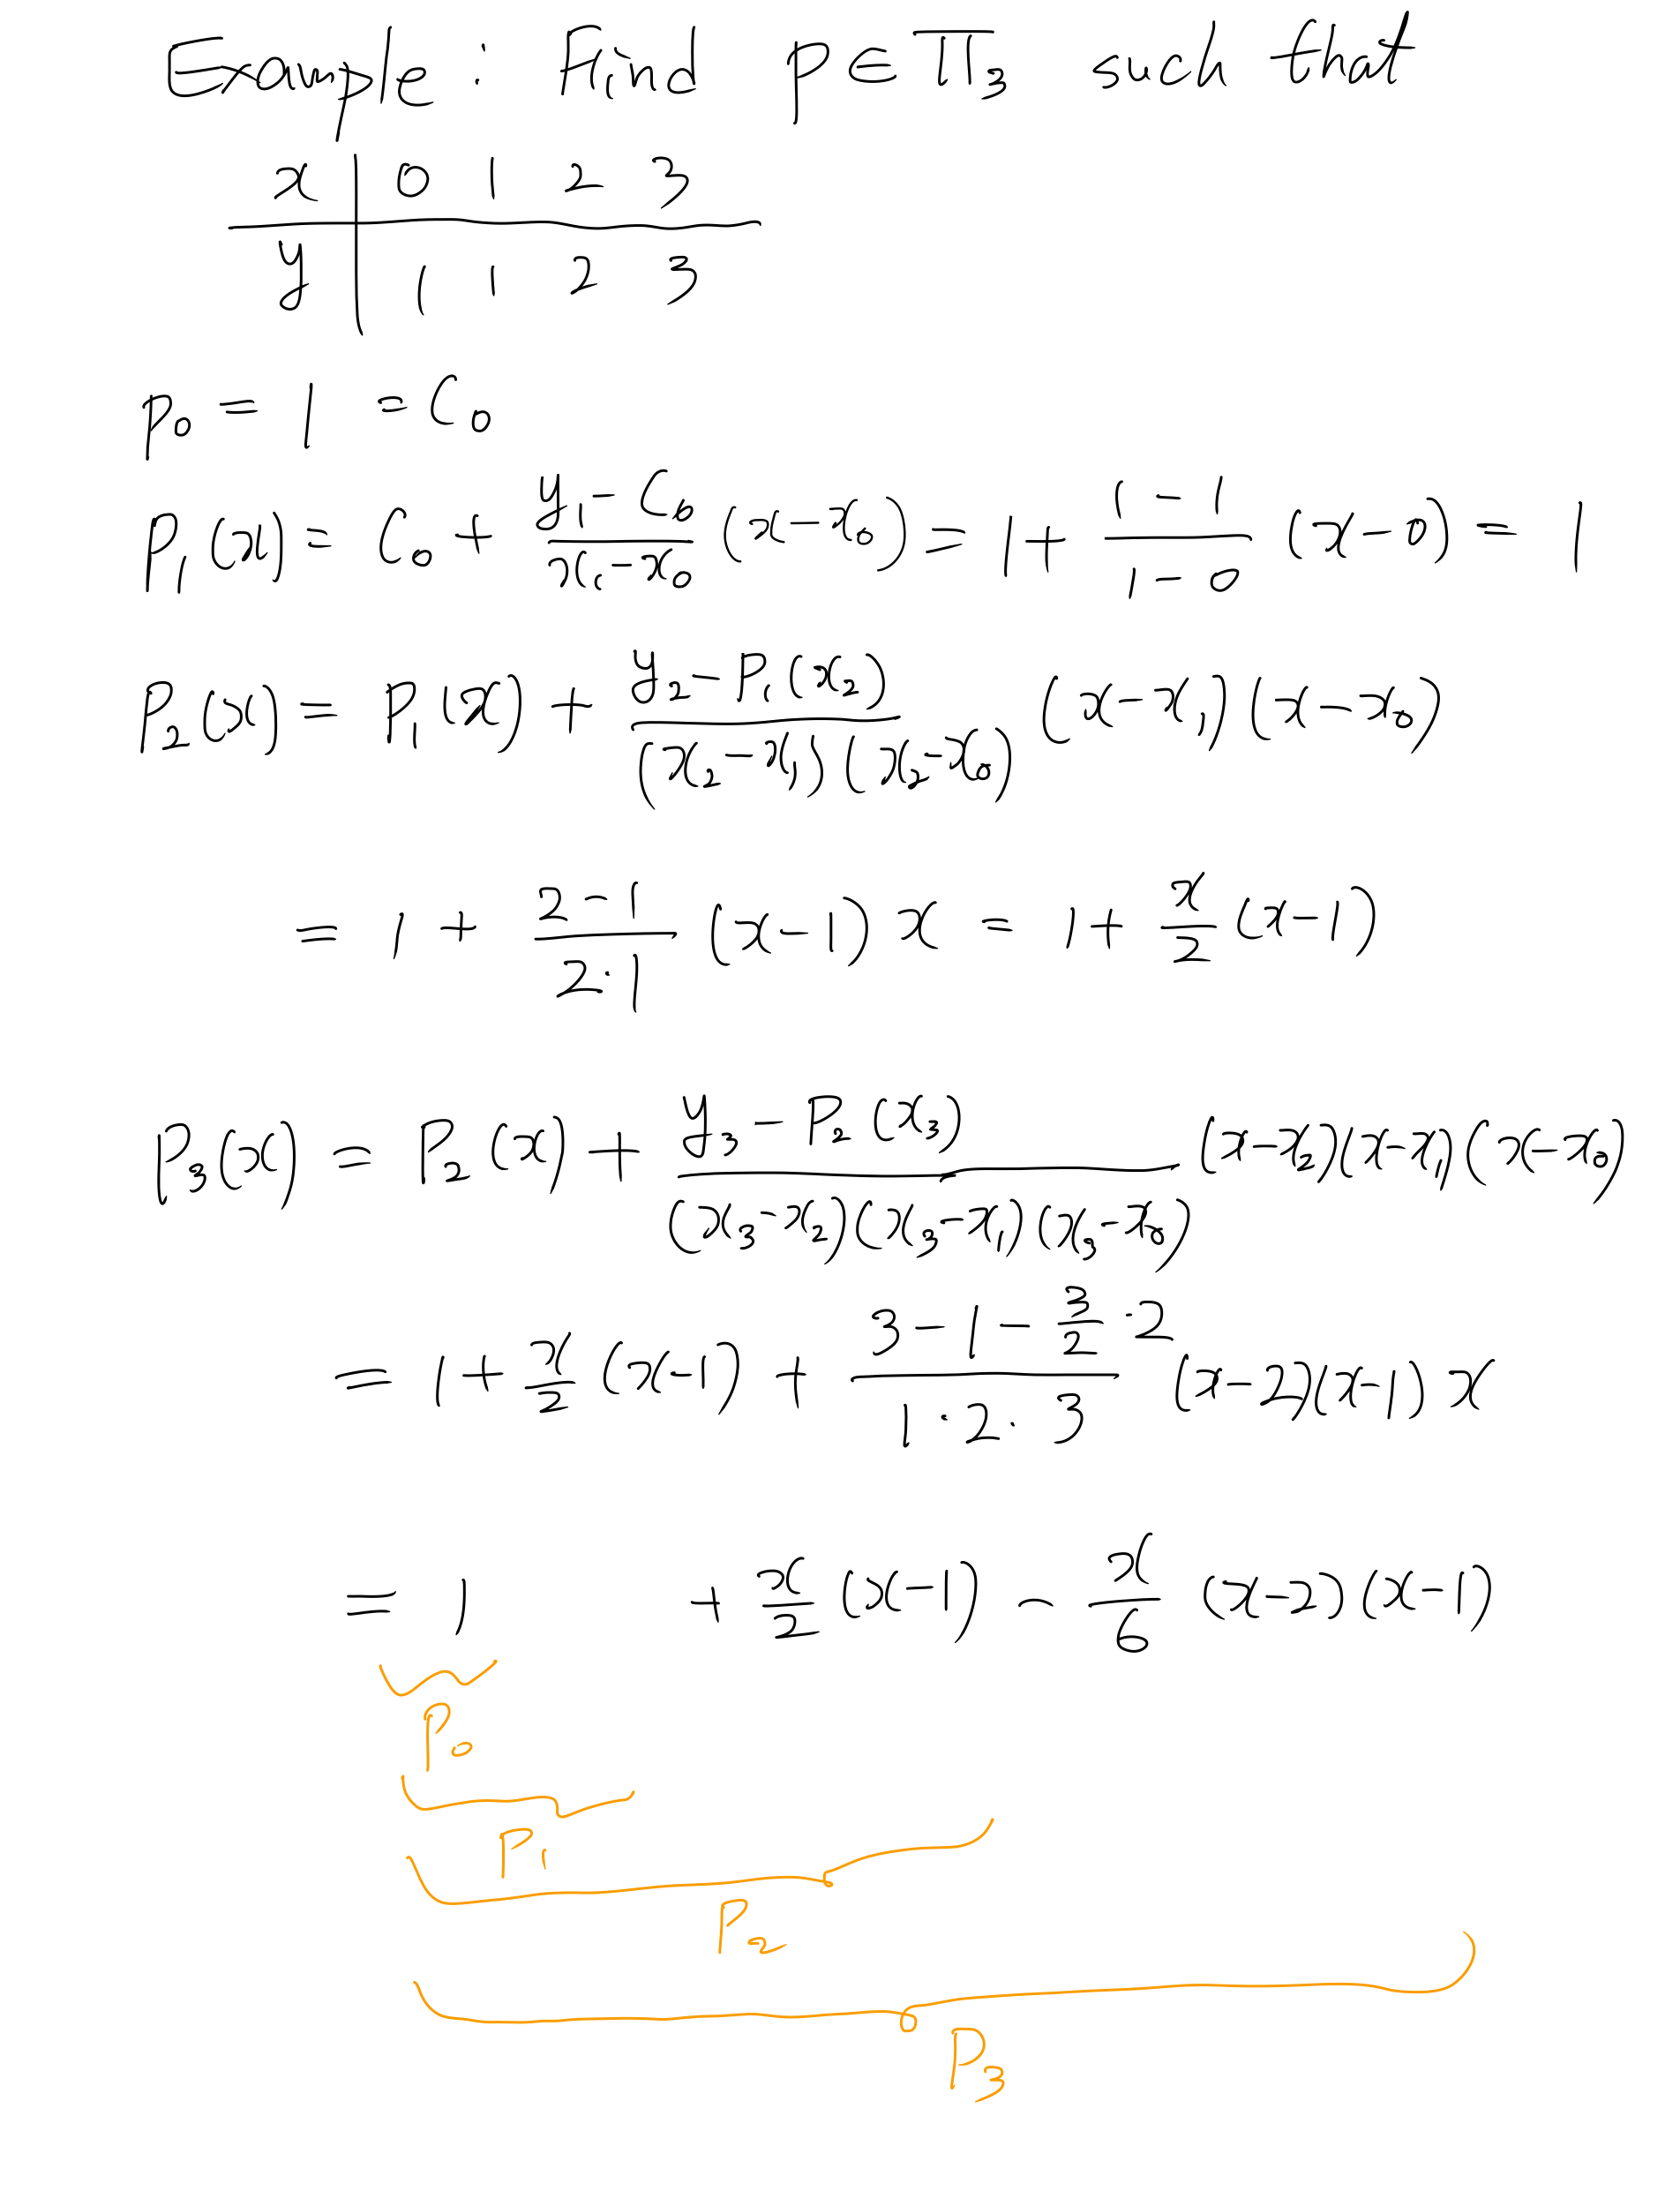 Example : Find p ∈ Π₃ such that
x | 0 1 2 3
y | 1 1 2 3
p₀ = 1 = C₀
P₁(x) = C₀ + (y₁ - C₀)/(x₁ - x₀) (x - x₀) = 1 + (1 - 1)/(1 - 0) (x - 0) = 1
P₂(x) = P₁(x) + (y₂ - P₁(x₂))/((x₂ - x₁)(x₂ - x₀)) (x - x₁)(x - x₀)
= 1 + (2 - 1)/(2·1) (x - 1) x = 1 + x/2 (x - 1)
P₃(x) = P₂(x) + (y₃ - P₂(x₃))/((x₃ - x₂)(x₃ - x₁)(x₃ - x₀)) (x - x₂)(x - x₁)(x - x₀)
= 1 + x/2 (x - 1) + (3 - 1 - 3/2 · 2)/(1 · 2 · 3) (x - 2)(x - 1) x
= 1 + x/2 (x - 1) - x/6 (x - 2)(x - 1)
P₀
P₁
P₂
P₃